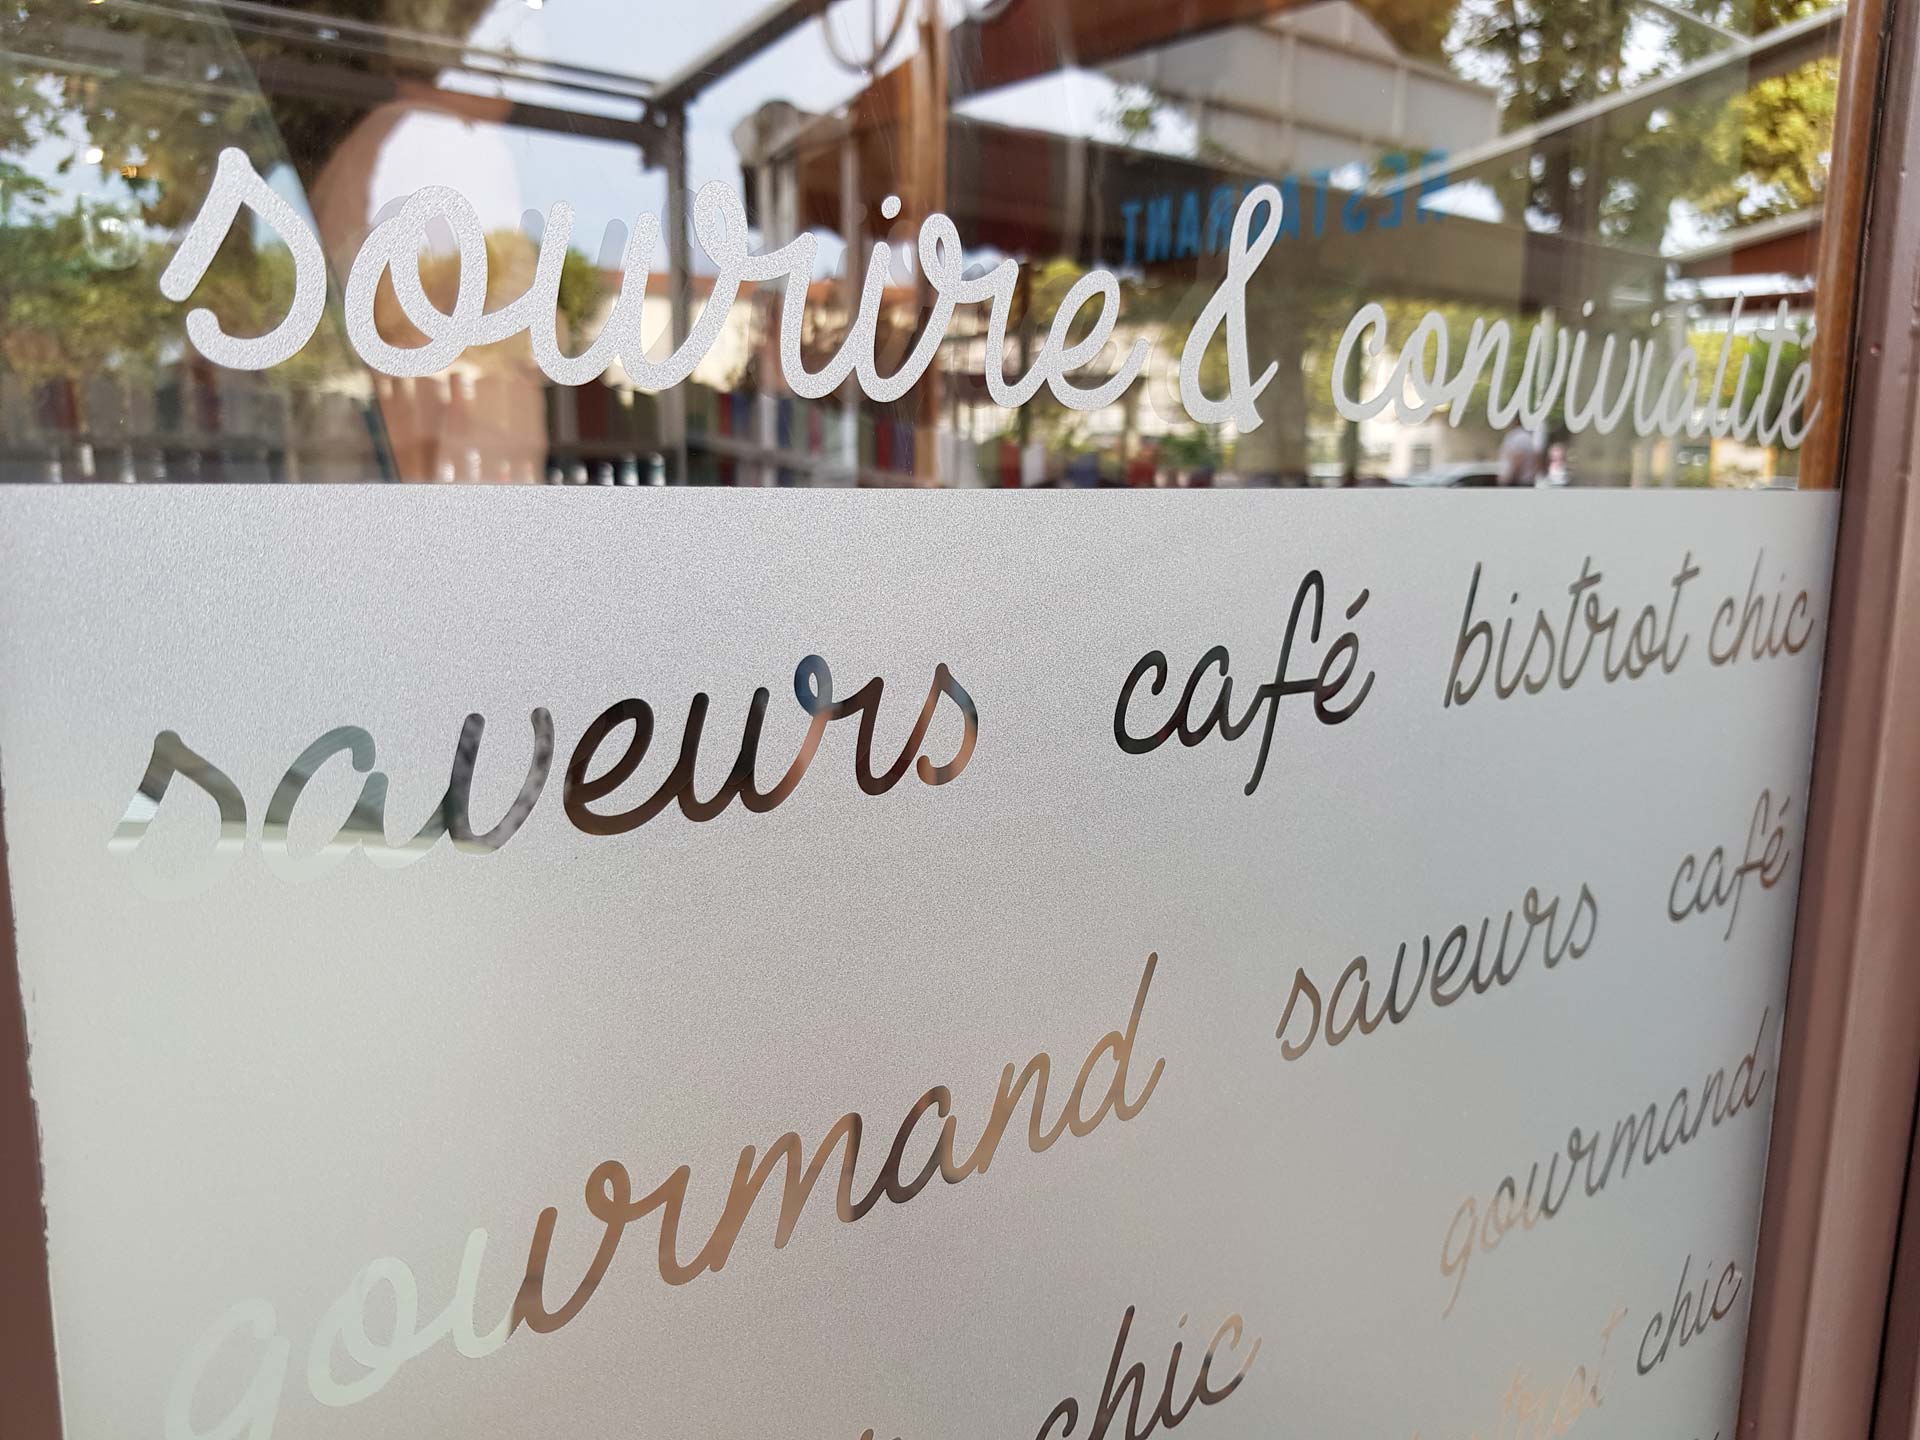 sourire & convivialité
RESTAURANT
saveurs café bistrot chic
gourmand saveurs café
chic gourmand
bistrot chic